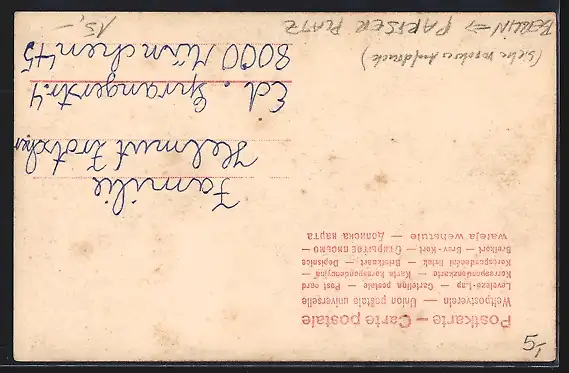 Postkarte — Carte postale
Weltpostverein — Union postale universelle
Levelező-Lap — Cartolina postale — Post card
Korrespondenzkarte — Karta korespondencyjna —
Korespondenční lístek — Briefkaart — Dopisnice
Brefkort — Brev-Kort — Открытое письмо —
wateja wehstule — Дописна карта
Familie
Helmut Zrotscher
Ed. Sprangerstr. 4
8000 München 45
BERLIN → PARISER PLATZ
(siehe
15,-
5,-